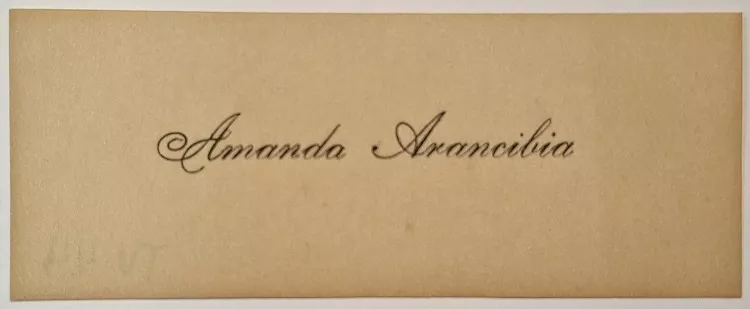 Amanda Arancibia